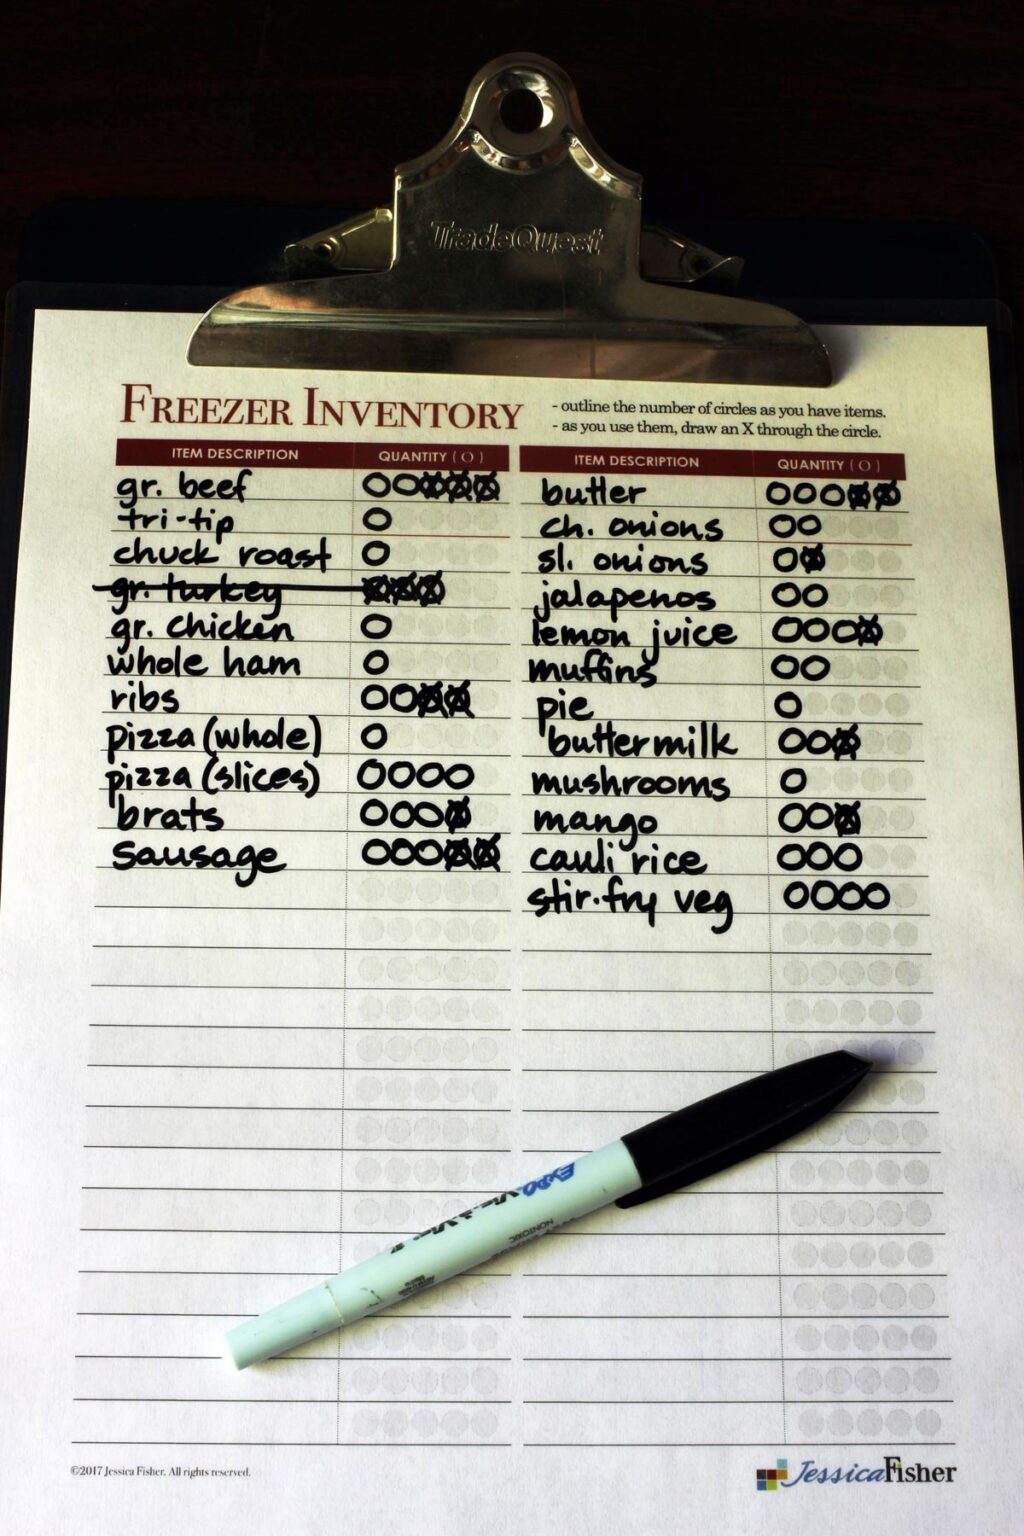 TradeQuest
FREEZER INVENTORY
- outline the number of circles as you have items.
- as you use them, draw an X through the circle.
ITEM DESCRIPTION QUANTITY ( O )
gr. beef
tri-tip
chuck roast
gr. turkey
gr. chicken
whole ham
ribs
pizza (whole)
pizza (slices)
brats
sausage
ITEM DESCRIPTION QUANTITY ( O )
butter
ch. onions
sl. onions
jalapenos
lemon juice
muffins
pie
buttermilk
mushrooms
mango
cauli rice
stir-fry veg
EXPO
NONTOXIC
©2017 Jessica Fisher. All rights reserved.
JessicaFisher